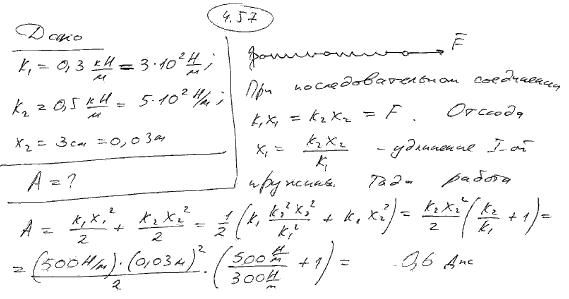 4.57
Дано
k₁ = 0,3 кН/м = 3·10² Н/м;
k₂ = 0,5 кН/м = 5·10² Н/м;
x₂ = 3 см = 0,03 м
A = ?
F⃗
При последовательном соединении
k₁x₁ = k₂x₂ = F. Отсюда
x₁ = k₂x₂/k₁ - удлинение I-ой
пружины. Тогда работа
A = k₁x₁²/2 + k₂x₂²/2 = 1/2 (k₁ k₂²x₂²/k₁² + k₂x₂²) = k₂x₂²/2 (k₂/k₁ + 1) =
= (500 Н/м)·(0,03 м)²/2 · (500 Н/м / 300 Н/м + 1) = 0,6 Дж